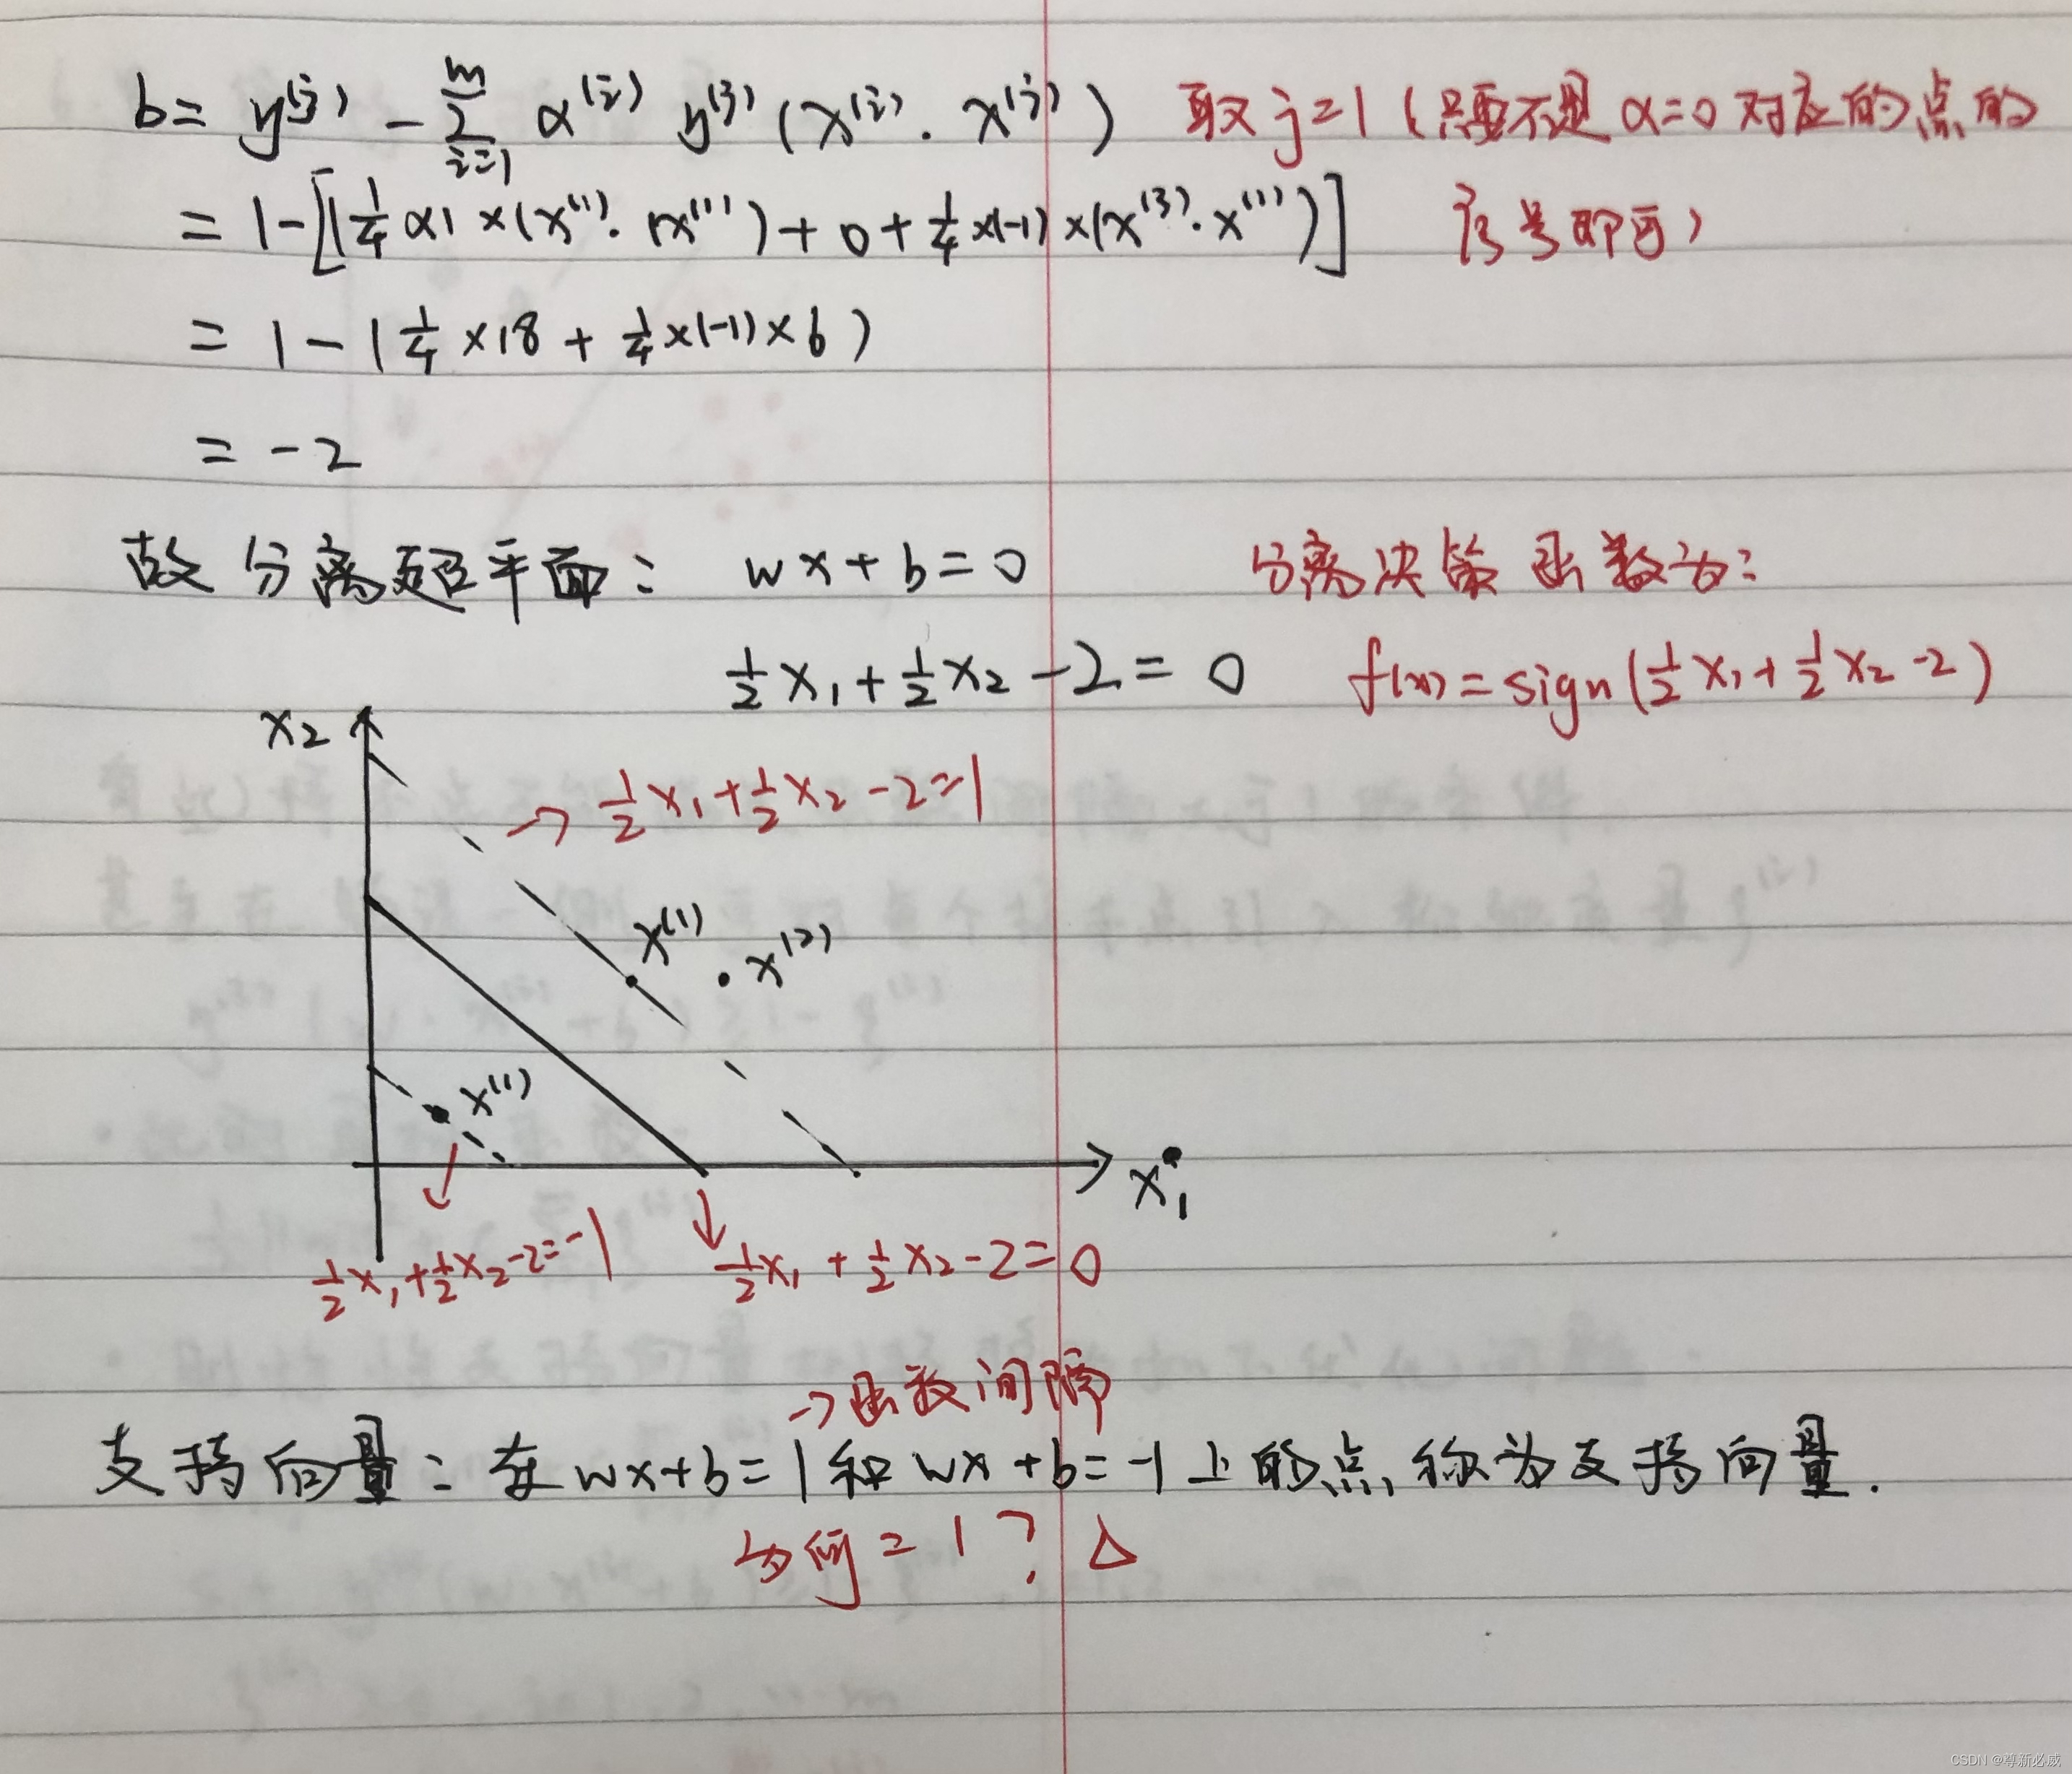 b = y⁽ʲ⁾ - ∑ᵢ₌₁ᵐ α⁽ⁱ⁾ y⁽ʲ⁾ (x⁽ⁱ⁾ · x⁽ʲ⁾) 取 j=1 (只要不是 α=0 对应的点的
= 1-[(1/4 × 1 × (x⁽¹⁾ · (x⁽¹⁾) + 0 + 1/4 × (-1) × (x⁽³⁾ · x⁽¹⁾)] 序号即可)
= 1 - (1/4 × 18 + 1/4 × (-1) × 6)
= -2
故分离超平面: wx + b = 0 分离决策函数为:
1/2 x₁ + 1/2 x₂ - 2 = 0 f(x) = sign(1/2 x₁ + 1/2 x₂ - 2)
x₂
→ 1/2 x₁ + 1/2 x₂ - 2 = 1
x⁽¹⁾
x⁽²⁾
x⁽¹⁾
x₁
1/2 x₁ + 1/2 x₂ - 2 = -1
1/2 x₁ + 1/2 x₂ - 2 = 0
→ 函数间隔
支持向量: 在 wx+b=1 和 wx+b=-1 上的点, 称为支持向量.
为何=1? △
CSDN @尊新必威